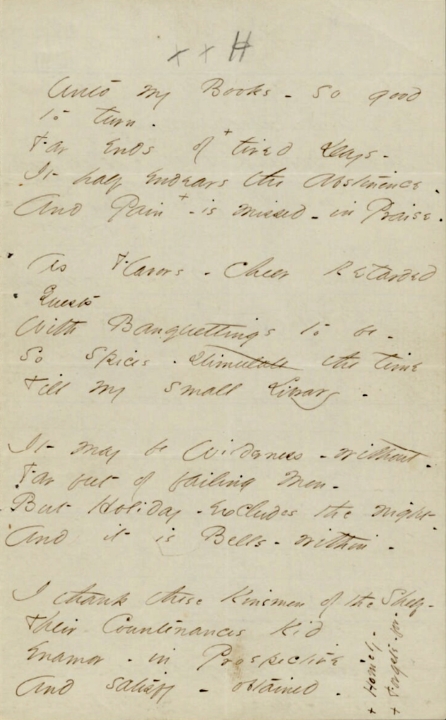 x x H
Unto my Books - so good
to turn -
Far Ends of + tired Days -
It half endears the Abstinence -
And Pain + - is missed - in Praise.
As Flavors - cheer Retarded
Guests
With Banquettings to be -
So Spices - stimulate the time
Till my small Library -
It may be Wilderness - without -
Far feet of failing Men -
But Holiday - excludes the night -
And it is Bells - within -
I thank these Kinsmen of the Shelf -
Their Countenances Kid
Enamor - in Prospective
And satisfy - obtained -
+ Homely -
+ Forget - for -